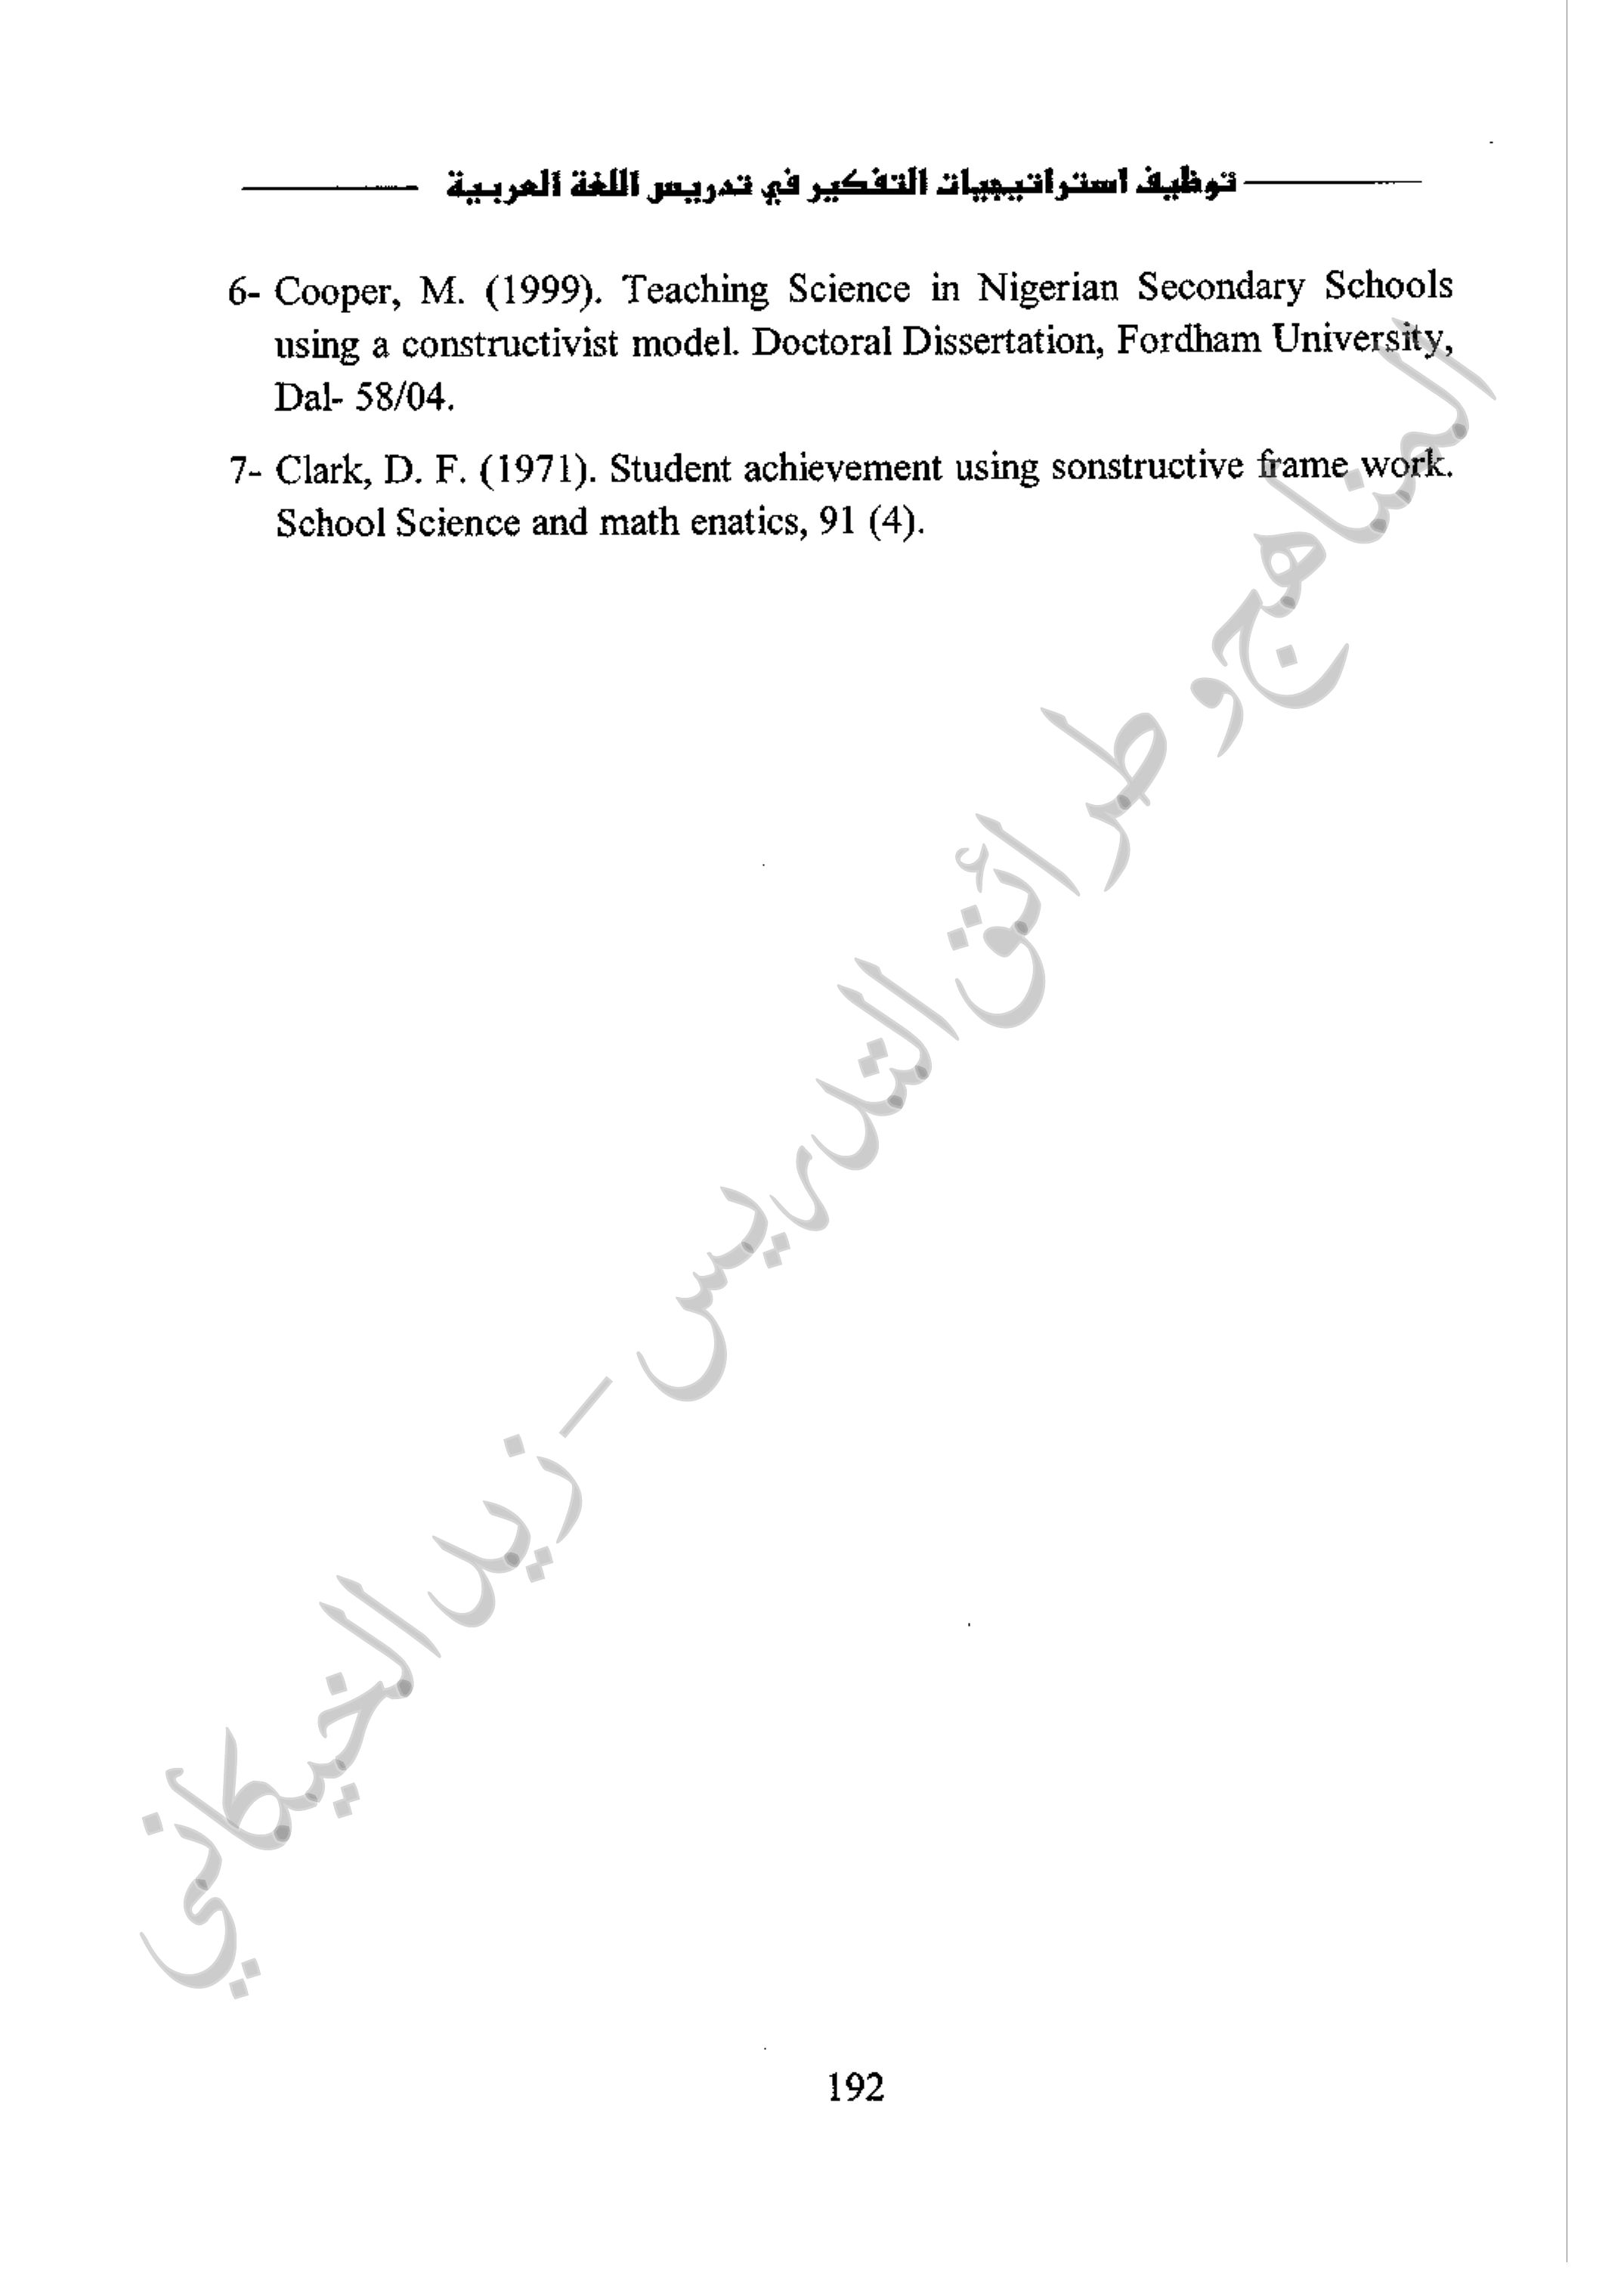 توظيف استراتيجيات التفكير في تدريس اللغة العربية
6- Cooper, M. (1999). Teaching Science in Nigerian Secondary Schools
using a constructivist model. Doctoral Dissertation, Fordham University,
Dal- 58/04.
7- Clark, D. F. (1971). Student achievement using sonstructive frame work.
School Science and math enatics, 91 (4).
المناهج وطرائق التدريس - زيد الخيكاني
192